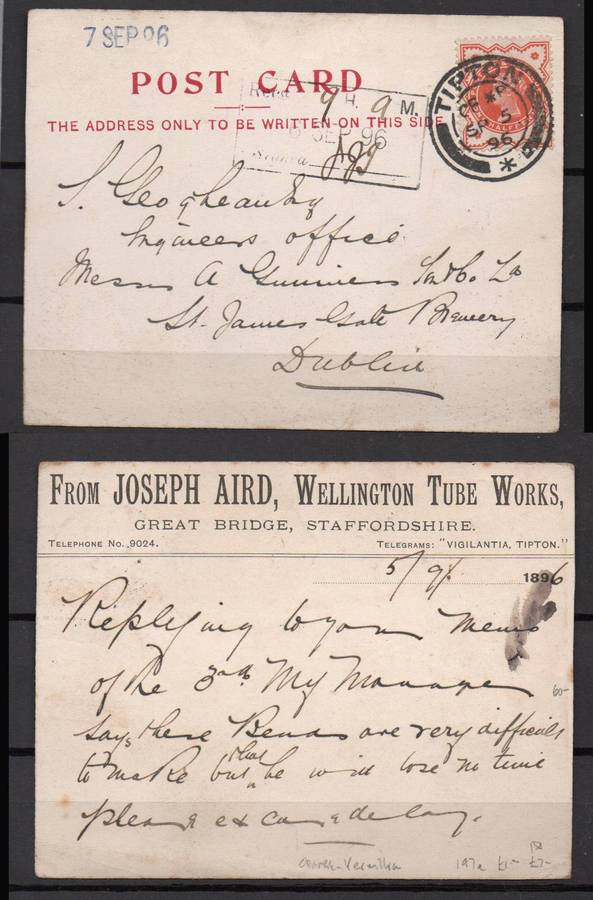 7 SEP 96
POST CARD
THE ADDRESS ONLY TO BE WRITTEN ON THIS SIDE
Recd 9 H. 9 M.
SEP 96
TIPTON
SP 5
96
S. Geoghegan Esq
Engineers office
Messrs A Guinness Son & Co. Ld
St. James Gate Brewery
Dublin
FROM JOSEPH AIRD, WELLINGTON TUBE WORKS,
GREAT BRIDGE, STAFFORDSHIRE.
TELEPHONE No. 9024.
TELEGRAMS: "VIGILANTIA, TIPTON."
5/9/ 1896
Replying to your memo
of the 3rd. My Manager
says these Bends are very difficult
to make but that he will lose no time
please excuse delay.
60-
Vermilion
197e £1- £7-